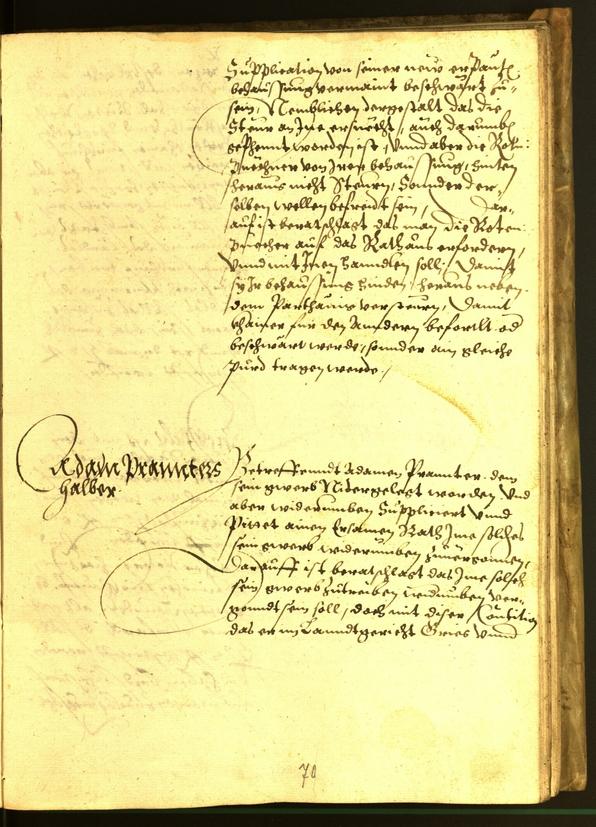 Supplication von seiner new erpauten
behaussung vermaint beschwärt zu
sein, Nemblichen dergestalt das die
Steur an Ine ersuecht, auch darumb
gephennt worden ist, Vnnd aber die Roten
Puecher von Irer behaussung, hinten
heraus nicht Steurn, Sonnder der-
selben wellen befreidt sein, Dar-
auf ist beratschlagt das man die Roten
Puecher auf das Rathaus erfordern,
Vnnd mit Inen hanndlen soll, Damit
sy Ir behaussung hinden heraus neben
dem Parthanis versteurn, Damit
khainer fur den Anndern befortlt od
beschwärt werde, sonnder ain gleiche
purd tragen werde.
Adam Prannters
halber.
Betreffenndt Adamen Prannter, dem
sein gwerb Nidergelegt worden, Vnd
aber widerumben Suppliciert vnnd
Pittet ainen Ersamen Rath Ime solches
sein gwerb widerumben zuuergonnen,
Darauff ist beratschlagt das Ime solch
sein gwerb zutreiben widerumben ver-
gonndt sein soll, doch mit diser Condition
das er im Lanndtgericht Gries vnnd
70